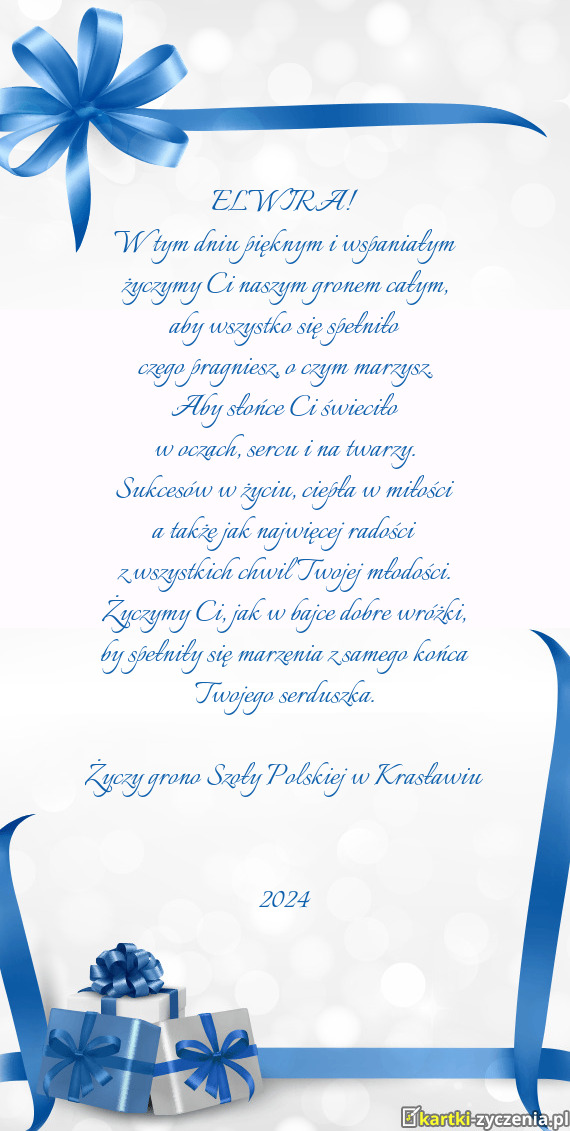 ELWIRA!
W tym dniu pięknym i wspaniałym
życzymy Ci naszym gronem całym,
aby wszystko się spełniło
czego pragniesz, o czym marzysz.
Aby słońce Ci świeciło
w oczach, sercu i na twarzy.
Sukcesów w życiu, ciepła w miłości
a także jak najwięcej radości
z wszystkich chwil Twojej młodości.
Życzymy Ci, jak w bajce dobre wróżki,
by spełniły się marzenia z samego końca
Twojego serduszka.
Życzy grono Szoły Polskiej w Krasławiu
2024
kartki-zyczenia.pl